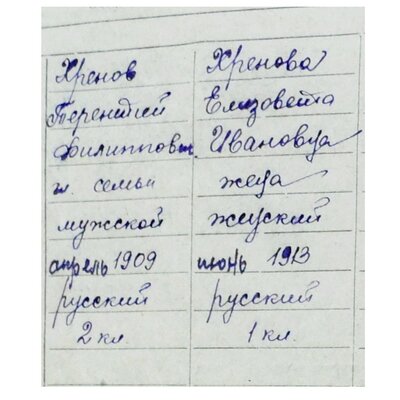 Хренов Хренова
Терентий Елизовета
Филиппович. Ивановна
гл. семьи жена
мужской женский
апрель 1909 июнь 1913
русский русский
2 кл. 1 кл.